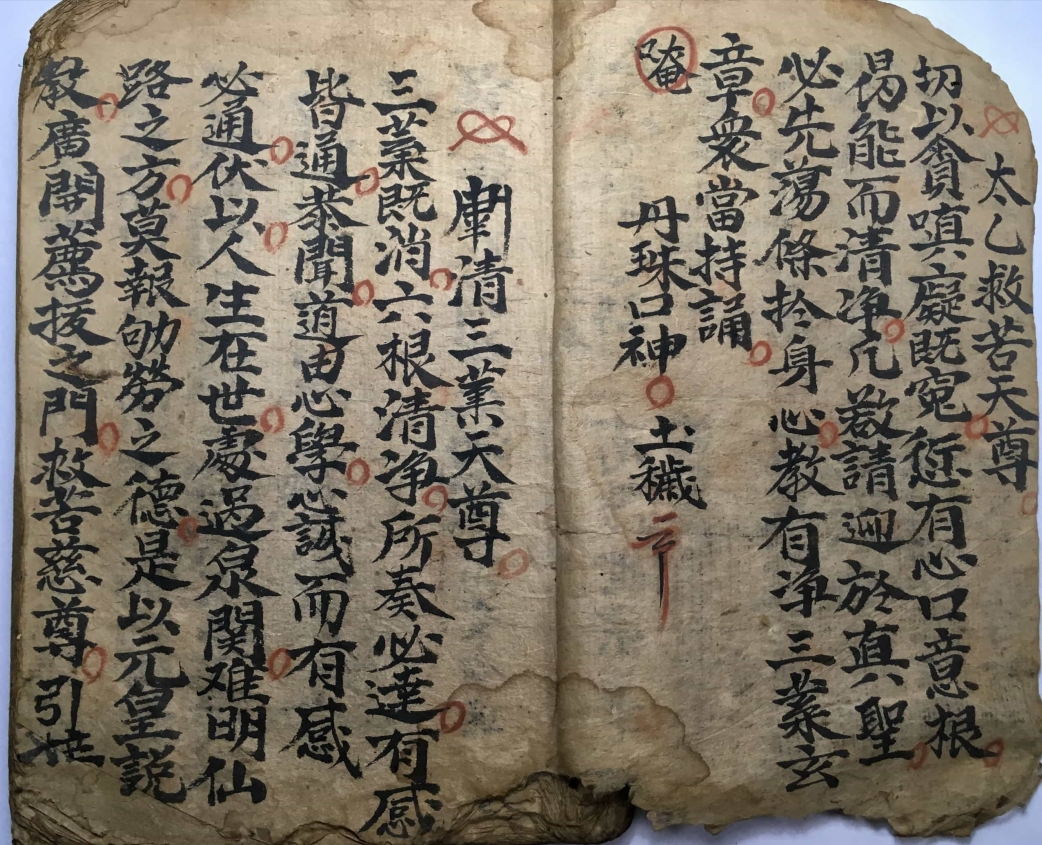 太乙救苦天尊
切以貪嗔癡既寃愆有心口意根
偈能而清净凢啓請迎於真聖
必先蕩滌扵身心教有净三業玄
章衆當持誦
唵
丹珠口神 土穢
清三業天尊
三業既消六根清净所奏必達有感
皆通恭聞道由心學心誠而有感
必通伏以人生在世處過泉関难明仙
路之方莫報劬劳之德是以元皇説
教廣開薦拔之門救苦慈尊引